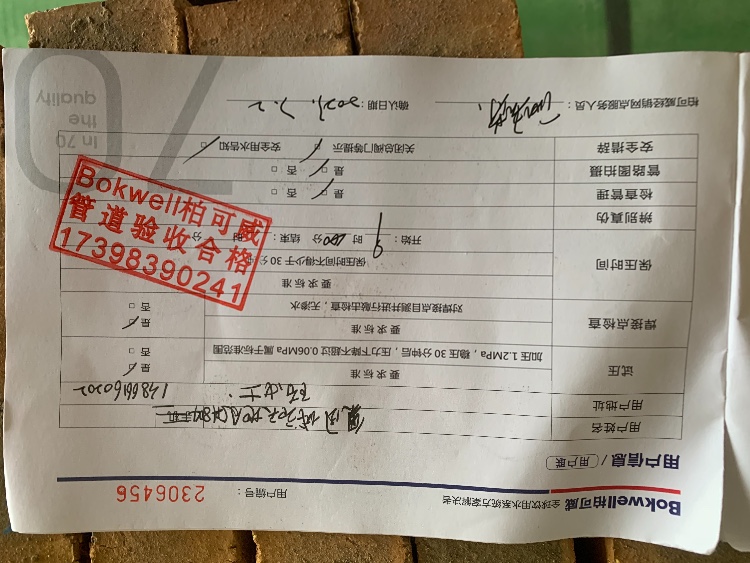 Bokwell柏可威 全球饮用水系统方案解决者
用户编号：2306456
用户信息 / 用户联
用户姓名
用户地址
试压
要求标准
加压1.2MPa，稳压30分钟后，压力下降不超过0.06MPa属于标准范围
是 □
否 □
焊接点检查
要求标准
对焊接点目测并进行敲击检查，无渗水
是 □
否 □
保压时间
要求标准
保压时间不得少于30分钟
开始： 9 时 分 结束： 时 分
辨别真伪
检查管理
是 □ 否 □
管路图拍摄
是 □ 否 □
安全措辞
关闭总阀门等提示 □ 安全用水告知 □
柏可威经销网点服务人员：
确认日期：
In 70
the
quality
70
Bokwell柏可威
管道验收合格
17398390241